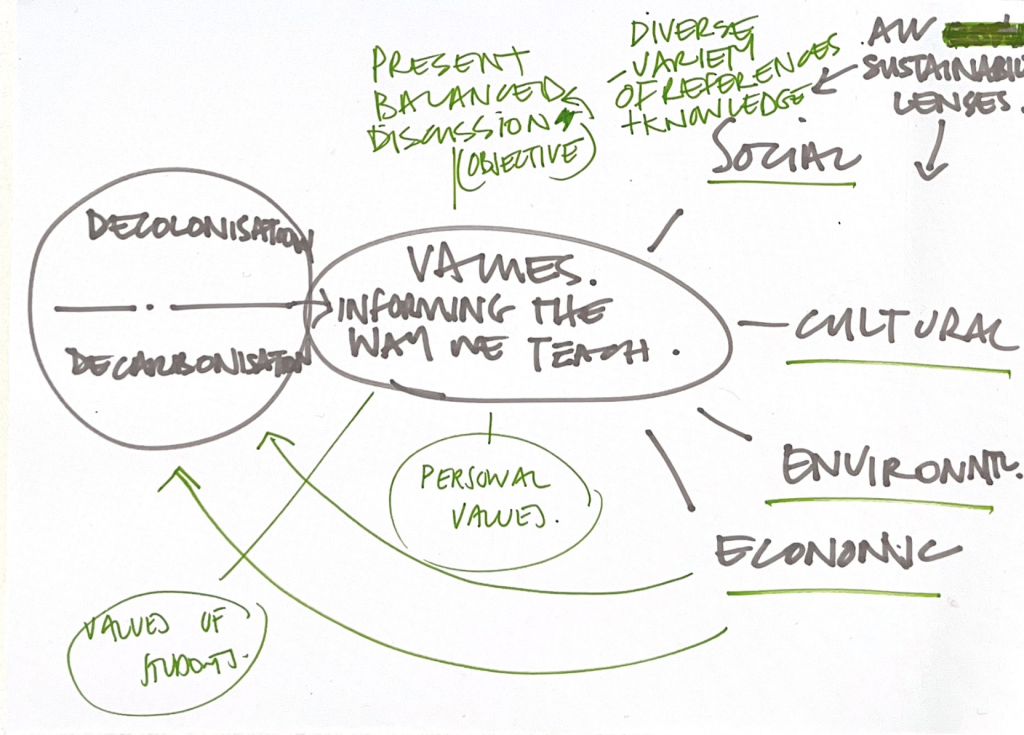 PRESENT
BALANCED
DISCUSSION
(OBJECTIVE)
DIVERSE
- VARIETY
OF REFERENCES
+ KNOWLEDGE
SUSTAINABILI
LENSES.
SOCIAL
DECOLONISATION
DECARBONISATION
VALUES.
INFORMING THE
WAY WE TEACH.
CULTURAL
ENVIRONMTL.
ECONOMIC
PERSONAL
VALUES.
VALUES OF
STUDENTS.